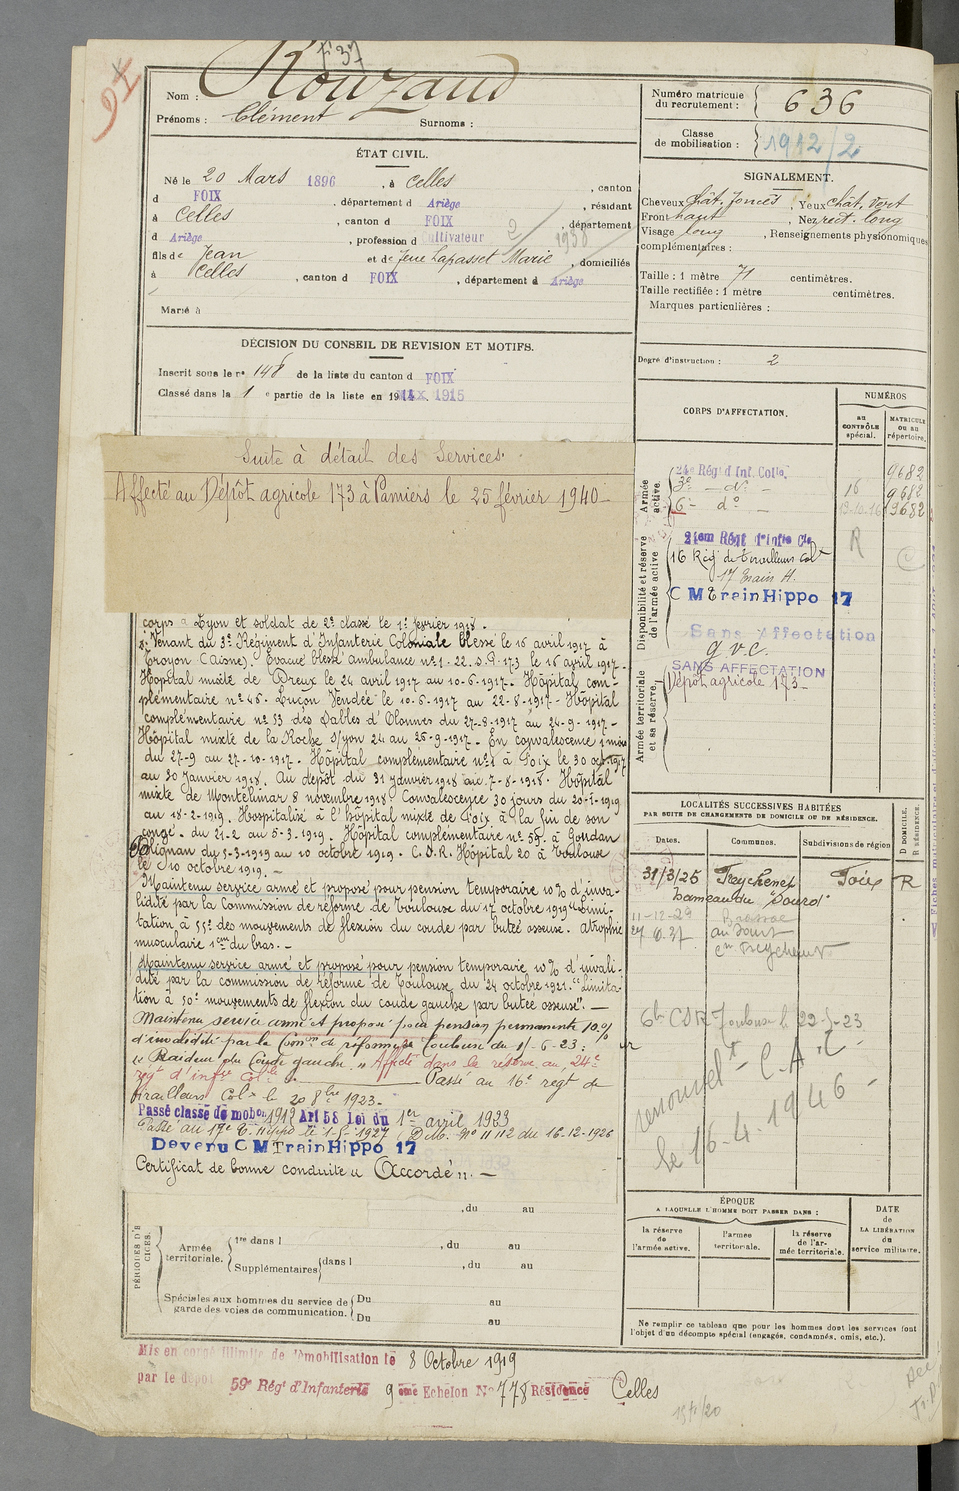 Nom : Rouzaud
Prénoms : Clément Surnoms :
Numéro matricule du recrutement : 636
Classe de mobilisation : 1912/2
ÉTAT CIVIL.
Né le 20 Mars 1896, à Celles, canton
d FOIX, département d Ariège, résidant
à Celles, canton d FOIX, département
d Ariège, profession d Cultivateur
fils de Jean et de feue Lapasset Marie, domiciliés
à Celles, canton d FOIX, département d Ariège
Marié à
SIGNALEMENT.
Cheveux chât. foncés, Yeux chât. vert
Front haut, Nez rect. long
Visage long, Renseignements physionomiques
complémentaires :
Taille : 1 mètre 71 centimètres.
Taille rectifiée : 1 mètre centimètres.
Marques particulières :
Degré d'instruction : 2
DÉCISION DU CONSEIL DE REVISION ET MOTIFS.
Inscrit sous le nº 148 de la liste du canton d FOIX
Classé dans la 1 e partie de la liste en 1915
Suite à détail des Services.
Affecté au Dépôt agricole 173 à Pamiers le 25 février 1940 -
corps à Lyon et soldat de 2e classe le 1er février 1918.
Venant du 3e Régiment d'Infanterie Coloniale blessé le 16 avril 1917 à
Troyon (Aisne). Evacué blessé ambulance nº 1. 22. S.P. 173 le 16 avril 1917 -
Hôpital mixte de Dreux le 24 avril 1917 au 10-6-1917 - Hôpital com-
plémentaire nº 46. Luçon Vendée le 10-6-1917 au 22-8-1917 - Hôpital
complémentaire nº 53 des Sables d'Olonnes du 27-8-1917 au 24-9-1917 -
Hôpital mixte de la Roche s/yon 24 au 26-9-1917 - En convalescence 1 mois
du 27-9 au 27-10-1917. Hôpital complémentaire nº 1 à Foix le 30 oct 1917
au 30 Janvier 1918. Au dépôt du 31 janvier 1918 au 7-8-1918. Hôpital
mixte de Montélimar 8 novembre 1918. Convalescence 30 jours du 20-1-1919
au 18-2-1919. Hospitalisé à l'hôpital mixte de Foix à la fin de son
congé - du 21-2 au 5-3-1919. Hôpital complémentaire nº 59. à Gourdan
Polignan du 5-3-1919 au 10 octobre 1919. C.S.R. Hôpital 20 à Toulouse
le 10 octobre 1919. -
Maintenu service armé et proposé pour pension temporaire 10% d'inva-
lidité par la Commission de réforme de Toulouse du 17 octobre 1919 "Limi-
tation à 55º des mouvements de flexion du coude par butée osseuse. Atrophie
musculaire 1 cm du bras. -
Maintenu service armé et proposé pour pension temporaire 10% d'invali-
dité par la commission de réforme de Toulouse du 24 octobre 1921. "Limita-
tion à 50º mouvements de flexion du coude gauche par butée osseuse". -
Maintenu service armé et proposé pour pension permanente 10%
d'invalidité par la Comon de réforme de Toulouse du 1/-6-23 :
"Raideur du Coude gauche" Affecté dans la réserve au 24e
régt d'infie Colle Passé au 16e régt de
tirailleurs Colx le 20 8bre 1923 -
Passé classe de mobon 1912 Art 58 Loi du 1er avril 1923
Passé au 17e E. Hippo le 1-5-1927 Déb. Nº 11112 du 16-12-1926
Devenu C M Train Hippo 17
Certificat de bonne conduite "Accordé". -
CORPS D'AFFECTATION.
NUMÉROS
au CONTRÔLE spécial.
MATRICULE ou au répertoire.
Armée active.
24e Régt d'Inf. Colle. 9682
3e - dº - 16 9682
6e - dº - 13-10-16 13682
Disponibilité et réserve de l'armée active.
R
16 Régt de Tirailleurs Colx
17 Train H.
C M Train Hippo 17
Sans Affectation
g.v.c.
Armée territoriale et sa réserve.
SANS AFFECTATION
Dépôt agricole 173 -
LOCALITÉS SUCCESSIVES HABITÉES
PAR SUITE DE CHANGEMENTS DE DOMICILE OU DE RÉSIDENCE.
Dates. Communes. Subdivisions de région D DOMICILE. R RÉSIDENCE.
31/3/25 Freychenet Foix R
hameau du "Sourd"
11-12-29
27.6.37
6e CSR Toulouse le 22-5-23
renouvelt C.A.C.
le 16-4-1946 -
PÉRIODES D'EXERCICES.
, du au
Armée territoriale.
1re dans l , du au
Supplémentaires dans l , du au
Spéciales aux hommes du service de garde des voies de communication.
Du au
Du au
ÉPOQUE
A LAQUELLE L'HOMME DOIT PASSER DANS :
la réserve de l'armée active.
l'armée territoriale.
la réserve de l'armée territoriale.
DATE de LA LIBÉRATION du service militaire.
Ne remplir ce tableau que pour les hommes dont les services font
l'objet d'un décompte spécial (engagés, condamnés, omis, etc.).
Mis en congé illimité de démobilisation le 8 Octobre 1919
par le dépôt 59e Rég' d'Infanterie 9ème Echelon Nº 778 Résidence Celles